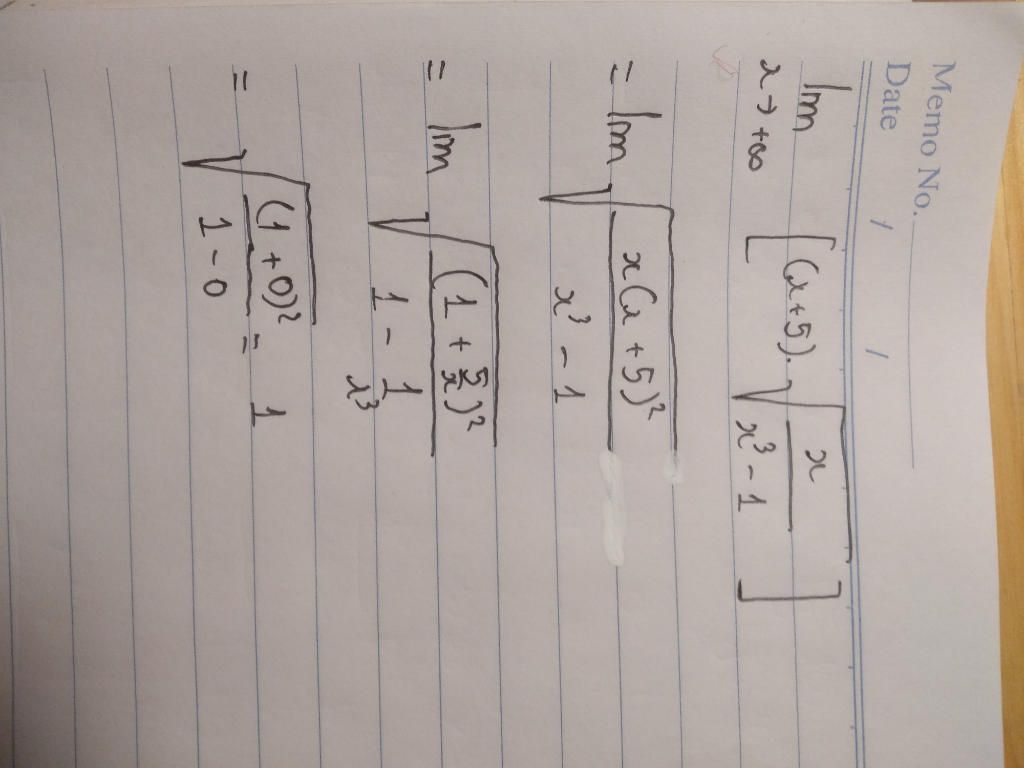 Memo No.
Date / /
lim x→+∞ [(x+5).√(x/(x³-1))]
= lim √(x(x+5)²/(x³-1))
= lim √((1+5/x)²/(1-1/x³))
= √((1+0)²/(1-0)) = 1